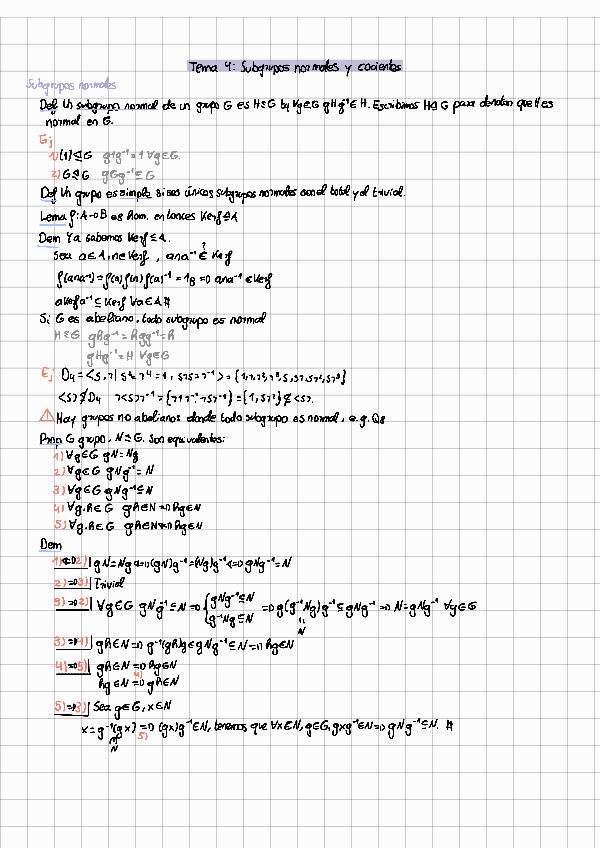 Tema 4: Subgrupos normales y cocientes
Subgrupos normales
Def Un subgrupo normal de un grupo G es H≤G tq ∀g∈G gHg⁻¹∈H. Escribimos H⊴G para denotar que H es
normal en G.
Ej
1) {1}⊴G g1g⁻¹=1 ∀g∈G.
2) G⊴G gGg⁻¹⊆G
Def Un grupo es simple si sus únicos subgrupos normales son el total y el trivial.
Lema f:A→B es hom. entonces Kerf⊴A
Dem Ya sabemos Kerf≤A.
Sea a∈A, n∈Kerf, ana⁻¹ ∈? Kerf
f(ana⁻¹)=f(a)f(n)f(a)⁻¹=1B ⇒ ana⁻¹∈Kerf
aKerfa⁻¹⊆Kerf ∀a∈A #
Si G es abeliano, todo subgrupo es normal
H≤G ghg⁻¹=hgg⁻¹=h
gHg⁻¹=H ∀g∈G
Ej D4=<s,r| s²=r⁴=1, srs=r⁻¹>={1,r,r²,r³,s,sr,sr²,sr³}
<s>⋬D4 r<s>r⁻¹={r1r⁻¹,rsr⁻¹}={1,sr²}⊈<s>.
⚠ Hay grupos no abelianos donde todo subgrupo es normal, e.g. Q8
Prop G grupo, N≤G. Son equivalentes:
1) ∀g∈G gN=Ng
2) ∀g∈G gNg⁻¹=N
3) ∀g∈G gNg⁻¹⊆N
4) ∀g,h∈G gh∈N⇒hg∈N
5) ∀g,h∈G gh∈N⇔hg∈N
Dem
1)⇔2)| gN=Ng⇔(gN)g⁻¹=(Ng)g⁻¹⇔gNg⁻¹=N
2)⇒3)| Trivial
3)⇒2)| ∀g∈G gNg⁻¹⊆N ⇒ { gNg⁻¹⊆N g⁻¹Ng⊆N ⇒ g(g⁻¹Ng)g⁻¹⊆gNg⁻¹ ⇒ N=gNg⁻¹ ∀g∈G
=
N
3)⇒4)| gh∈N⇒g⁻¹(gh)g∈gNg⁻¹⊆N⇒hg∈N
4)⇒5)| gh∈N⇒hg∈N
hg∈N ⇒4) gh∈N
5)⇒3)| Sea g∈G, x∈N
x=g⁻¹(gx) ⇒5) (gx)g⁻¹∈N, tenemos que ∀x∈N, g∈G, gxg⁻¹∈N⇒gNg⁻¹⊆N. #
∈
N